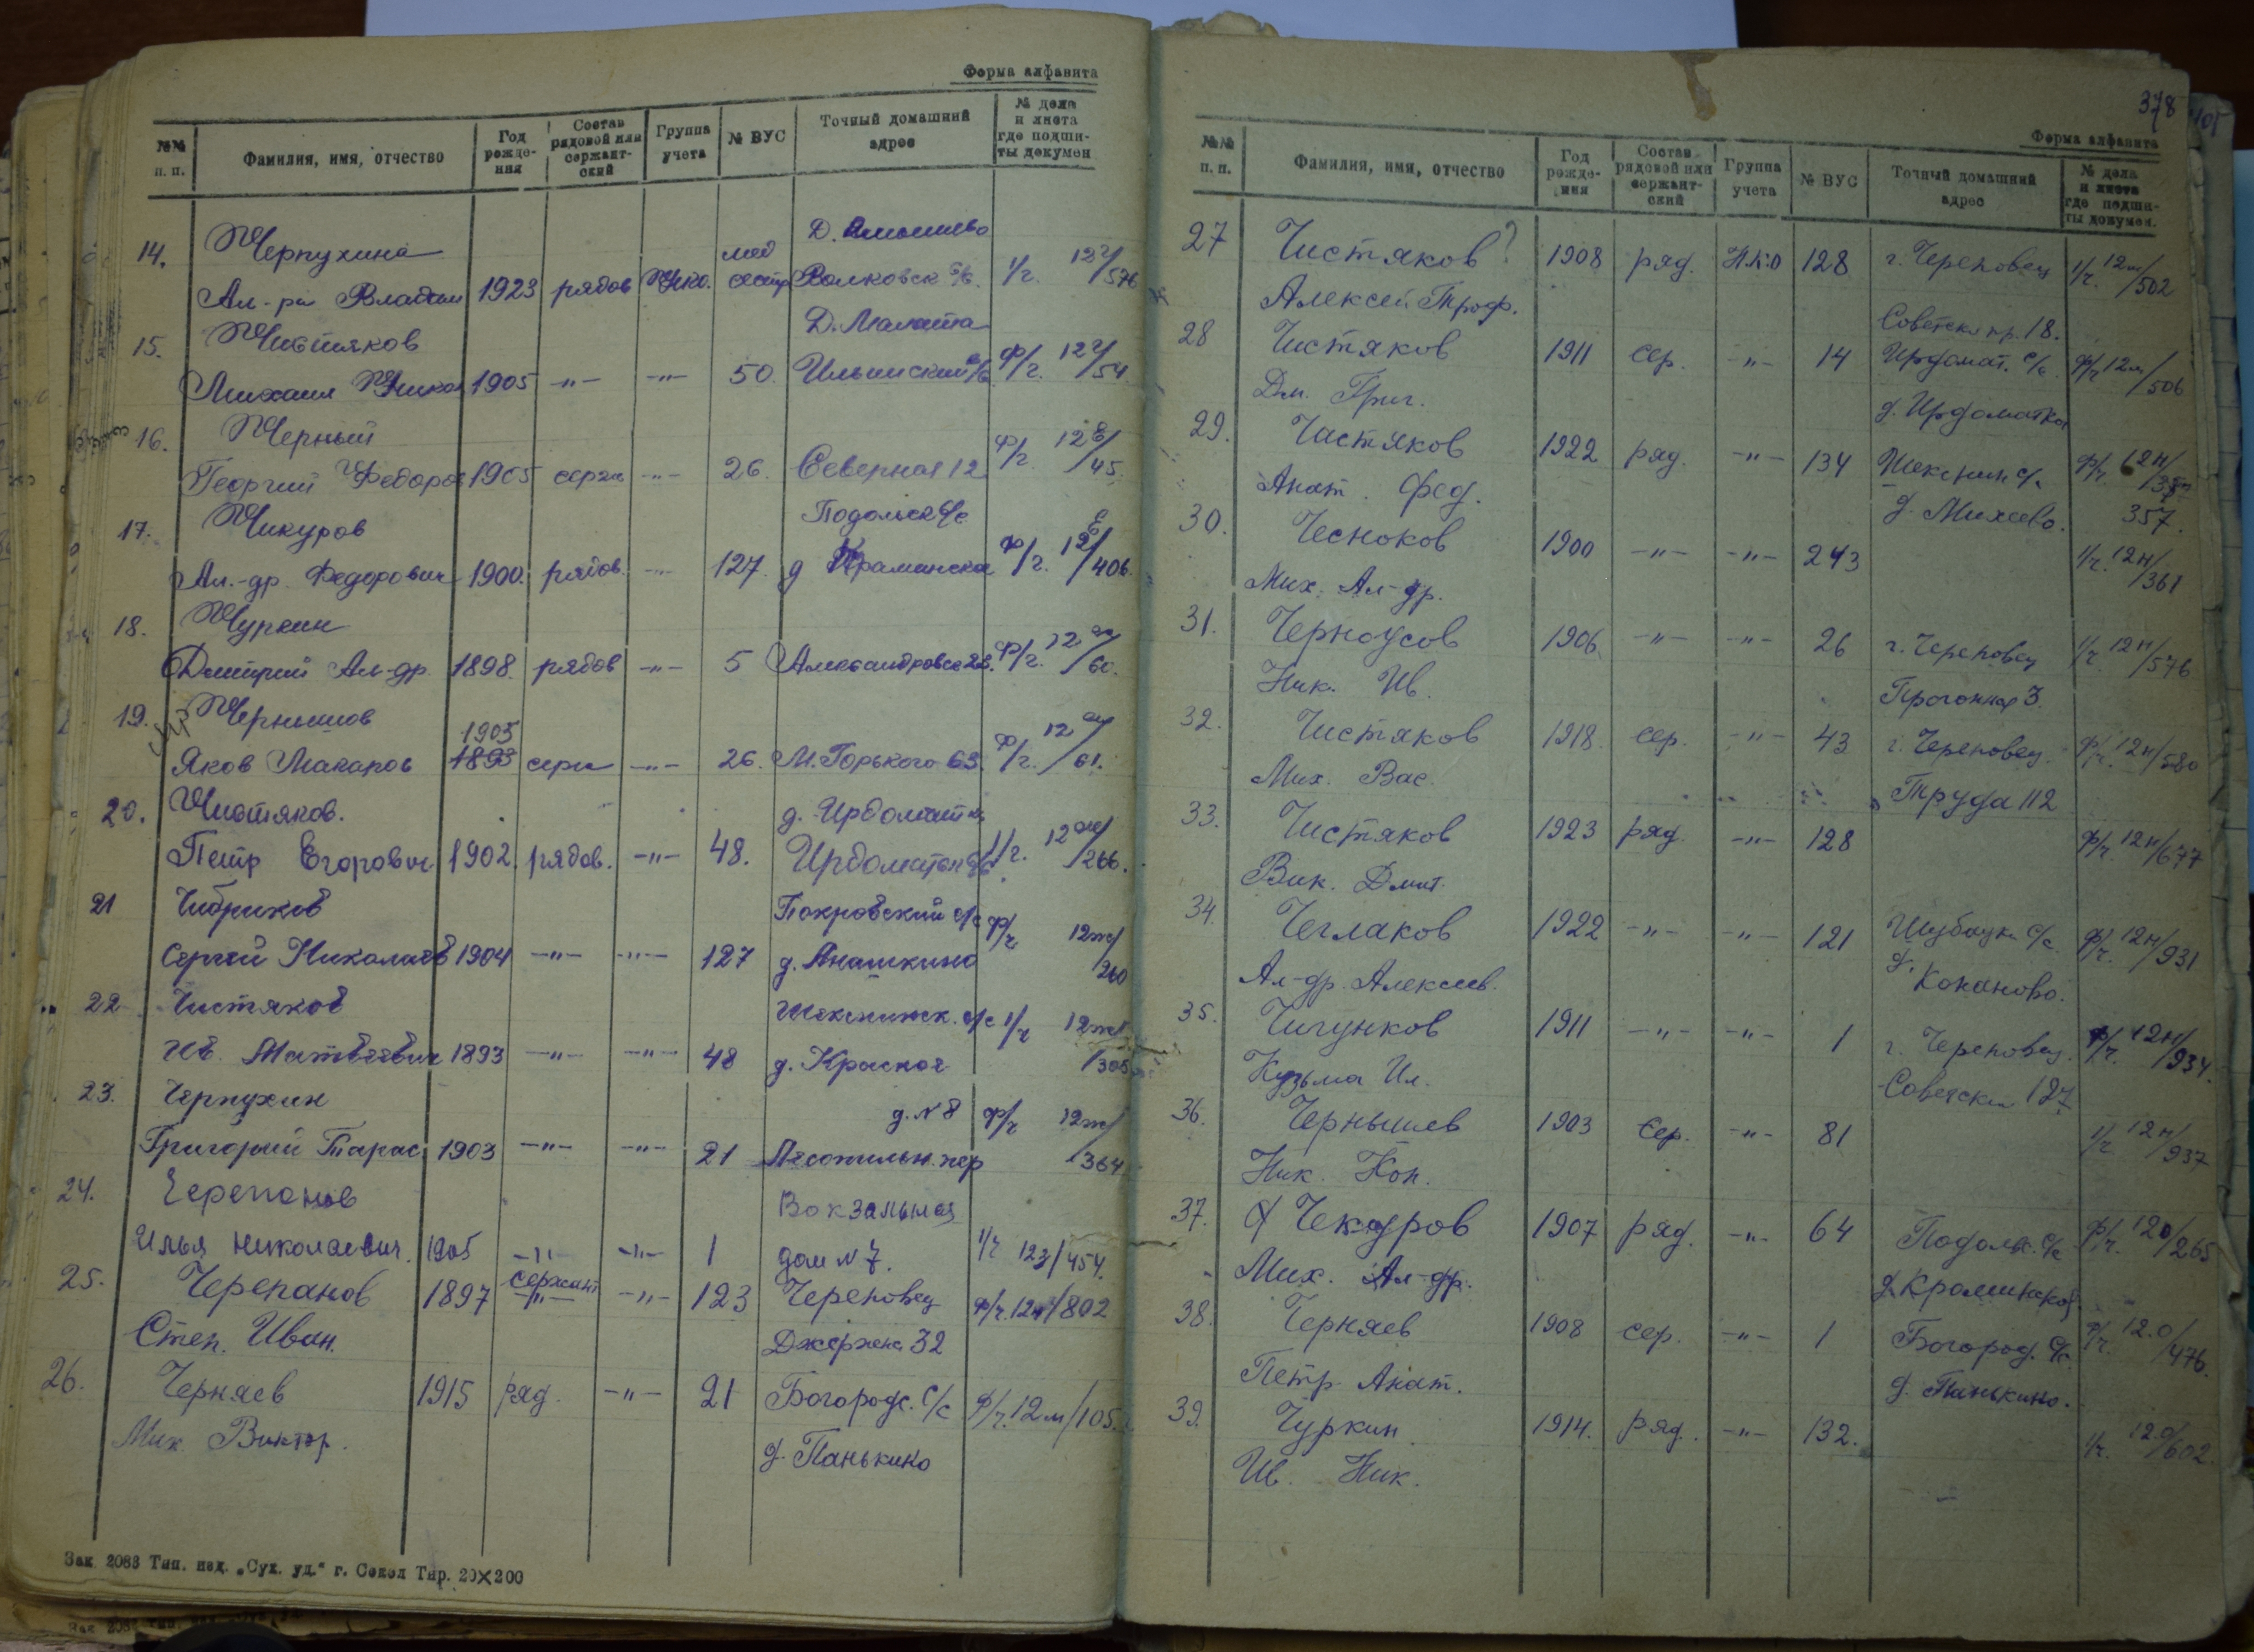 Форма алфавита
№№ п. п. Фамилия, имя, отчество Год рожде- ния Состав рядовой или сержант- ский Группа учета № ВУС Точный домашний адрес № дела и листа где подши- ты докумен
14. Черпухина Д.
Ал-ра Владим 1923 рядов НКО. мед сестр Волковск с/с. 1/г. 576
15. Чистяков Д. Малата
Михаил Никол 1905 -"- -"- 50. Ильинский с/с ф/г. 54.
16. Черный
Георгий Федоров 1905 серж -"- 26. Северная 12 ф/г. 12 е/45.
17. Чикуров Подольск с/с
Ал.-др. Федорович 1900. рядов. -"- 127. д Краминская ф/г. 12 е/406.
18. Чуркин
Дмитрий Ал-др. 1898. рядов -"- 5 Александровск 28. ф/г. 12 /60.
19. Чернышов 1903
Яков Макаров 1893 серж -"- 26. М. Горького 63. ф/г. 12 /61.
20. Чистяков. д. Ирдоматка
Петр Егорович. 1902. рядов. -"- 48. Ирдоматск с/с 1/г. 12 ж/266.
21 Чибриков Покровский с/с ф/г 12ж/
Сергей Николаев 1904 -"- -"- 127 д. Анашкино 260
22 Чистяков Шекснинск. с/с 1/г 12ж/
Ив. Матвеевич 1893 -"- -"- 48 д. Красная /305
23. Черпухин д. № 8 ф/г 12ж/
Григорий Тарас. 1903 -"- -"- 21 Лесопильн. пер /364
24. Черепанов Вокзальная
Илья Николаевич. 1905 -"- -"- 1 дом № 7. 1/г 12з/454.
25. Черепанов 1897 сержант -"- -"- 123 Череповец ф/г. 12 /802
Степ. Иван. Джержен. 32
26. Черняев 1915 ряд. -"- 21 Богородс. с/с ф/г. 12м/105.
Мих. Виктор. д. Панькино
Зак. 2083 Тип. изд. „Сух. уд." г. Сокол Тир. 20×200
378
Форма алфавита
№№ п. п. Фамилия, имя, отчество Год рожде- ния Состав рядовой или сержант- ский Группа учета № ВУС Точный домашний адрес № дела и листа где подши- ты докумен.
27 Чистяков? 1908 ряд. НКО 128 г. Череповец 1/г. 12м/502
Алексей Троф. Советски пр. 18.
28 Чистяков 1911 сер. -"- 14 Ирдомат. с/с. ф/г 12м/506
Дм. Григ. д. Ирдоматка
29. Чистяков 1922 ряд. -"- 134 Шекснин с/с ф/г. 12н/
Анат. Фед. д. Михеево. 357.
30. Чесноков 1900 -"- -"- 243 1/г. 12н/361
Мих. Ал-др.
31. Черноусов 1906 -"- -"- 26 г. Череповец 1/г. 12н/576
Ник. Ив. Прогонная 3.
32. Чистяков 1918. сер. -"- 43 г. Череповец. ф/г. 12н/580
Мих. Вас. Труда 112
33. Чистяков 1923 ряд. -"- 128 ф/г. 12н/677
Вик. Дмит.
34. Чеглаков 1922 -"- -"- 121 Шубацк. с/с. ф/г. 12н/931
Ал-др. Алексеев. д. Конаново.
35. Чигунков 1911 -"- -"- 1 г. Череповец. ф/г. 12н/934.
Кузьма Ил. Советски 127
36. Чернышев 1903 Сер. -"- 81 1/г. 12н/937
Ник. Кон.
37. Чекуров 1907 ряд. -"- 64 Подольс. с/с ф/г. 12о/265
Мих. Ал-др. д. Краминской
38. Черняев 1908 сер. -"- 1 Богород. с/с. ф/г. 12.о/476.
Петр Анат. д. Панькино.
39. Чуркин 1914. ряд. -"- 132. 1/г. 12.о/602.
Ив. Ник.